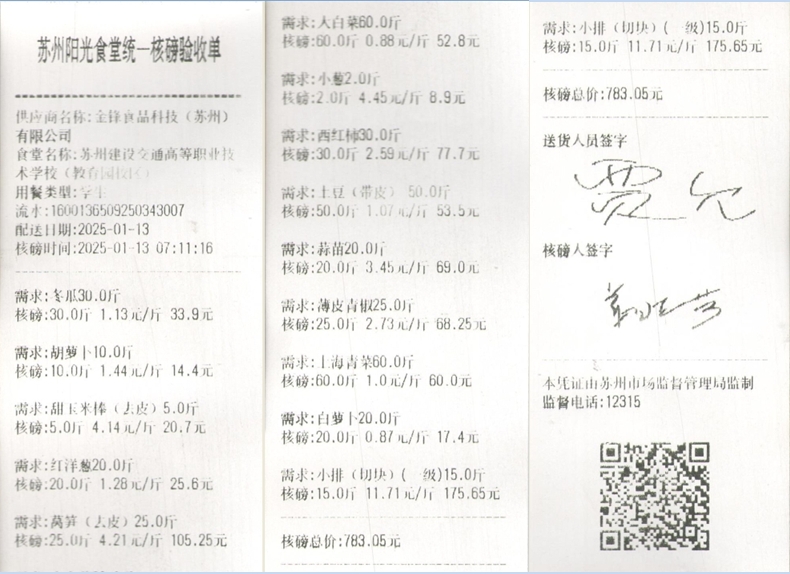 苏州阳光食堂统一核磅验收单
供应商名称:金锋食品科技（苏州）
有限公司
食堂名称:苏州建设交通高等职业技
术学校（教育园校区）
用餐类型:学生
流水:1600136509250343007
配送日期:2025-01-13
核磅时间:2025-01-13 07:11:16
需求:冬瓜30.0斤
核磅:30.0斤 1.13元/斤 33.9元
需求:胡萝卜10.0斤
核磅:10.0斤 1.44元/斤 14.4元
需求:甜玉米棒（去皮）5.0斤
核磅:5.0斤 4.14元/斤 20.7元
需求:红洋葱20.0斤
核磅:20.0斤 1.28元/斤 25.6元
需求:莴笋（去皮）25.0斤
核磅:25.0斤 4.21元/斤 105.25元
需求:大白菜60.0斤
核磅:60.0斤 0.88元/斤 52.8元
需求:小葱2.0斤
核磅:2.0斤 4.45元/斤 8.9元
需求:西红柿30.0斤
核磅:30.0斤 2.59元/斤 77.7元
需求:土豆（带皮） 50.0斤
核磅:50.0斤 1.07元/斤 53.5元
需求:蒜苗20.0斤
核磅:20.0斤 3.45元/斤 69.0元
需求:薄皮青椒25.0斤
核磅:25.0斤 2.73元/斤 68.25元
需求:上海青菜60.0斤
核磅:60.0斤 1.0元/斤 60.0元
需求:白萝卜20.0斤
核磅:20.0斤 0.87元/斤 17.4元
需求:小排（切块）( 级)15.0斤
核磅:15.0斤 11.71元/斤 175.65元
核磅总价:783.05元
需求:小排（切块）( 级)15.0斤
核磅:15.0斤 11.71元/斤 175.65元
核磅总价:783.05元
送货人员签字
贾允
核磅人签字
本凭证由苏州市场监督管理局监制
监督电话:12315